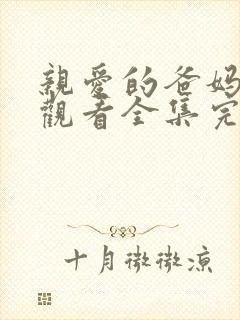 親愛的爸媽
觀看全集完
十月微微涼